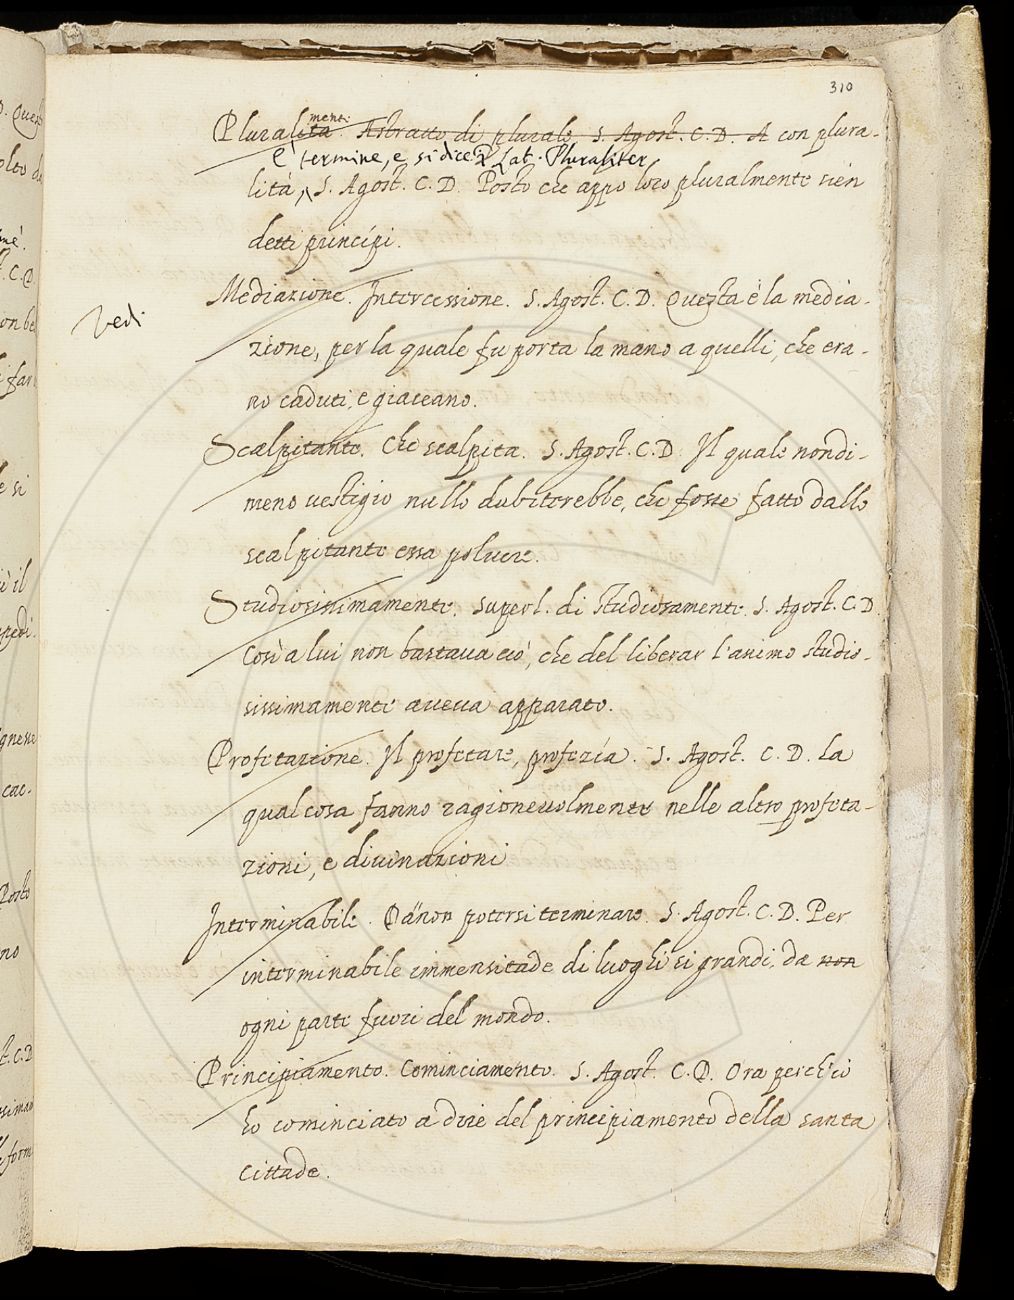 310
Pluralità mente. Astratto di plurale S. Agost. C. D. A con plura-
è termine, e si dice: Lat. Pluraliter
lità, S. Agost. C. D. Posto che appo loro pluralmente sien
detti principi.
Mediazione. Intercessione. S. Agost. C. D. Questa è la media-
Vedi
zione, per la quale fu porta la mano a quelli, che era-
no caduti, e giaceano.
Scalpitante. Che scalpita. S. Agost. C. D. Il quale nondi-
meno vestigio nullo dubiterebbe, che fosse fatto dallo
scalpitante essa polvere.
Studiosissimamente. Superl. di Studiosamente. S. Agost. C. D.
Così a lui non bastava ciò, che del liberar l'animo studio-
sissimamente aveva apparato.
Profetazione. Il profetare, profezía. S. Agost. C. D. La
qual cosa fanno ragionevolmente nelle altre profeta-
zioni, e divinazioni
Interminabile. Da non potersi terminare. S. Agost. C. D. Per
interminabile immensitade di luoghi si grandi, da non
ogni parte fuori del mondo.
Principiamento. Cominciamento. S. Agost. C. D. Ora perch'io
ho cominciato a dire del principiamento della santa
Cittade.